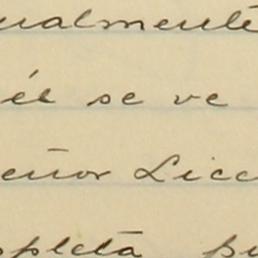 ualmente
él se ve
eñor Lic
pleta p